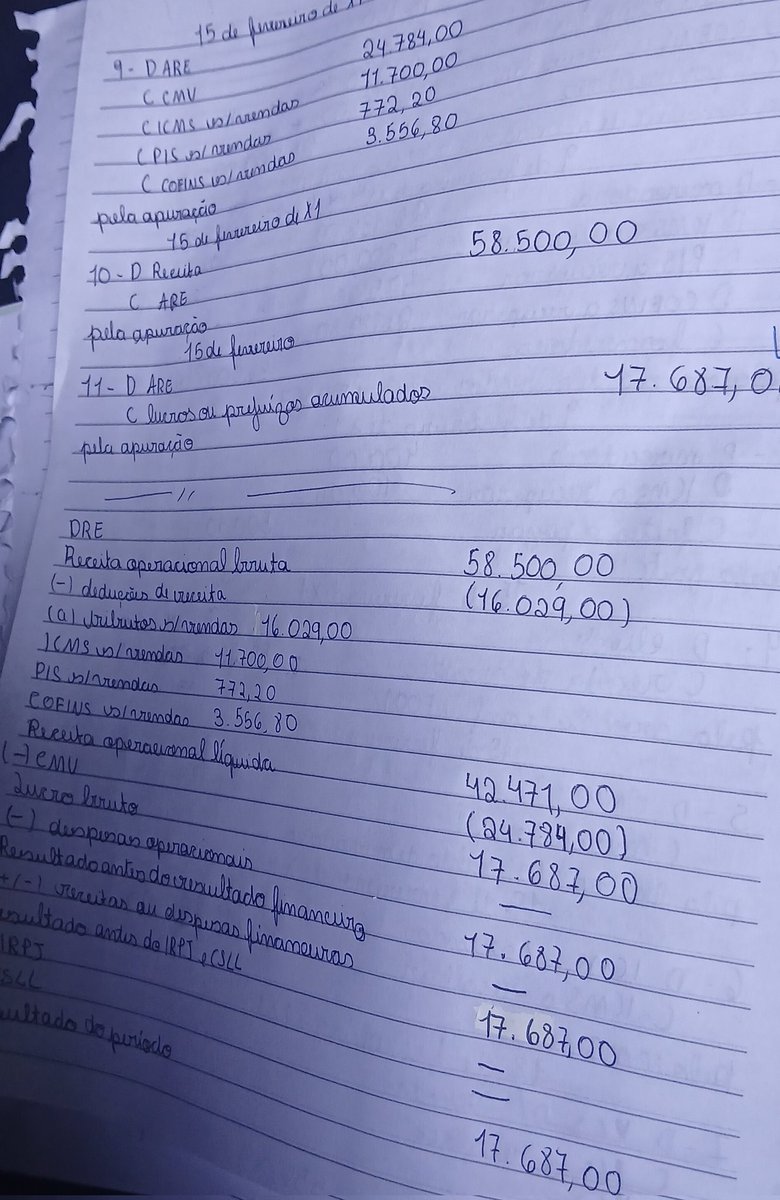 15 de fevereiro de X1
9 - D ARE
C CMV 24.784,00
C ICMS s/vendas 11.700,00
C PIS s/vendas 772,20
C COFINS s/vendas 3.556,80
pela apuração
15 de fevereiro de X1
10 - D Receita 58.500,00
C ARE
pela apuração
15 de fevereiro
11 - D ARE 17.687,0
C lucros ou prejuízos acumulados
pela apuração
//
DRE
Receita operacional bruta 58.500,00
(-) deduções de receita (16.029,00)
(a) tributos s/vendas 16.029,00
ICMS s/vendas 11.700,00
PIS s/vendas 772,20
COFINS s/vendas 3.556,80
Receita operacional líquida 42.471,00
(-) CMV (24.784,00)
Lucro bruto 17.687,00
(-) despesas operacionais —
Resultado antes do resultado financeiro 17.687,00
+/(-) receitas ou despesas financeiras —
esultado antes do IRPJ e CSLL 17.687,00
IRPJ —
SLL —
ultado do período 17.687,00